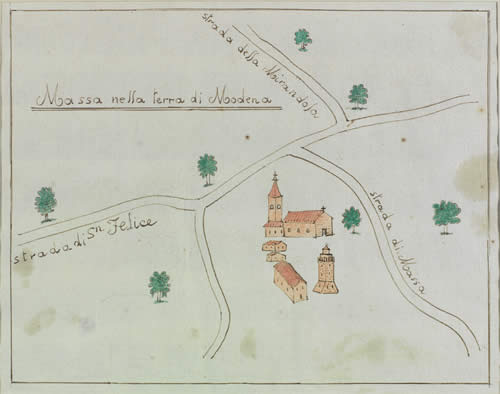 strada della Mirandola
Massa nella terra di Modena
strada di Sn Felice
strada di Massa